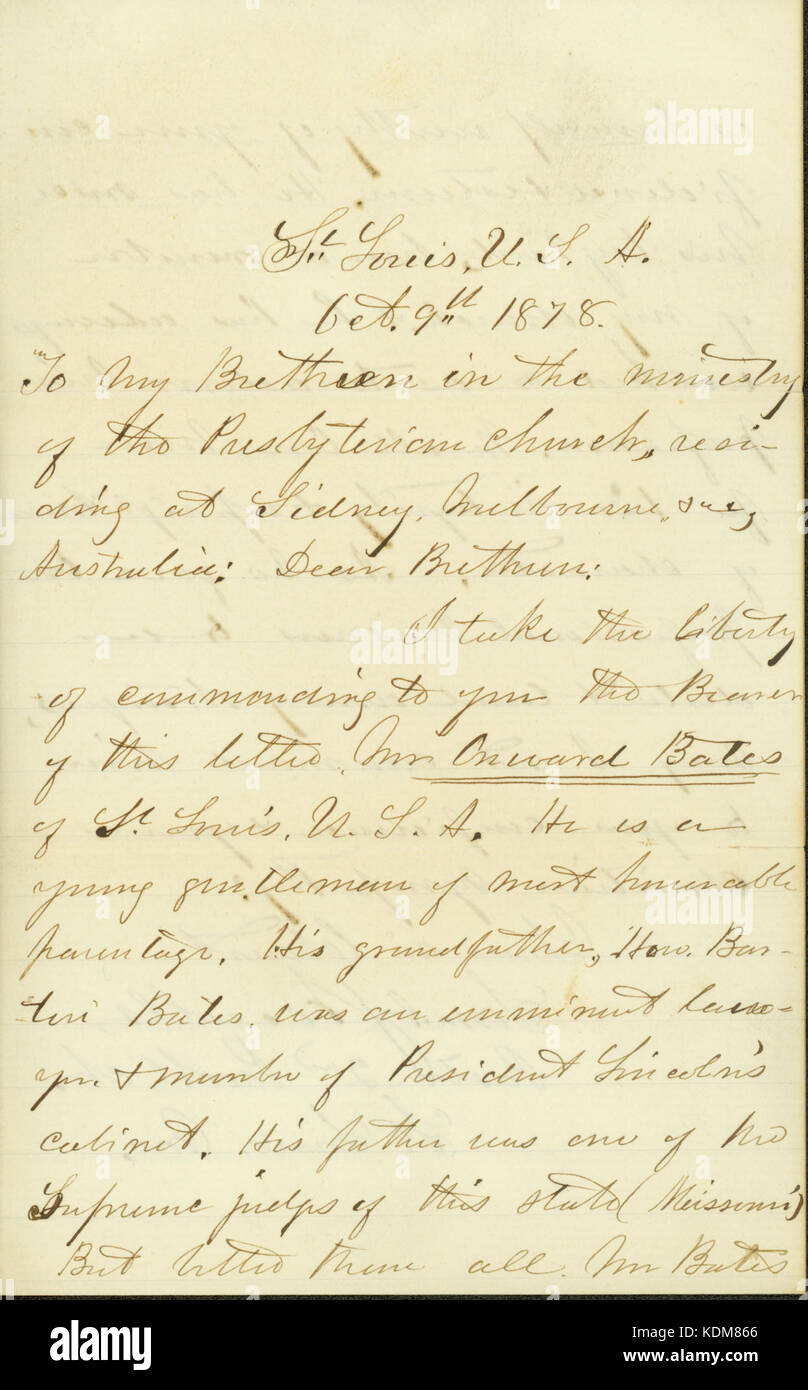 St. Louis, U. S. A.
Oct. 9th 1878.
To My Brethren in the ministry
of the Presbyterian church, resi-
ding at Sidney, Melbourne, &c,
Australia: Dear Brethren:
I take the liberty
of commending to you the Bearer
of this letter, Mr Onward Bates
of St Louis, U. S. A. He is a
young gentleman of most honorable
parentage. His grandfather, Hon. Bar-
ton Bates, was an emminent law-
yer & member of President Lincoln's
cabinet. His father was one of the
Supreme judges of this state (Missouri)
But better than all, Mr Bates
alamy
alamy
Image ID: KDM866
www.alamy.com